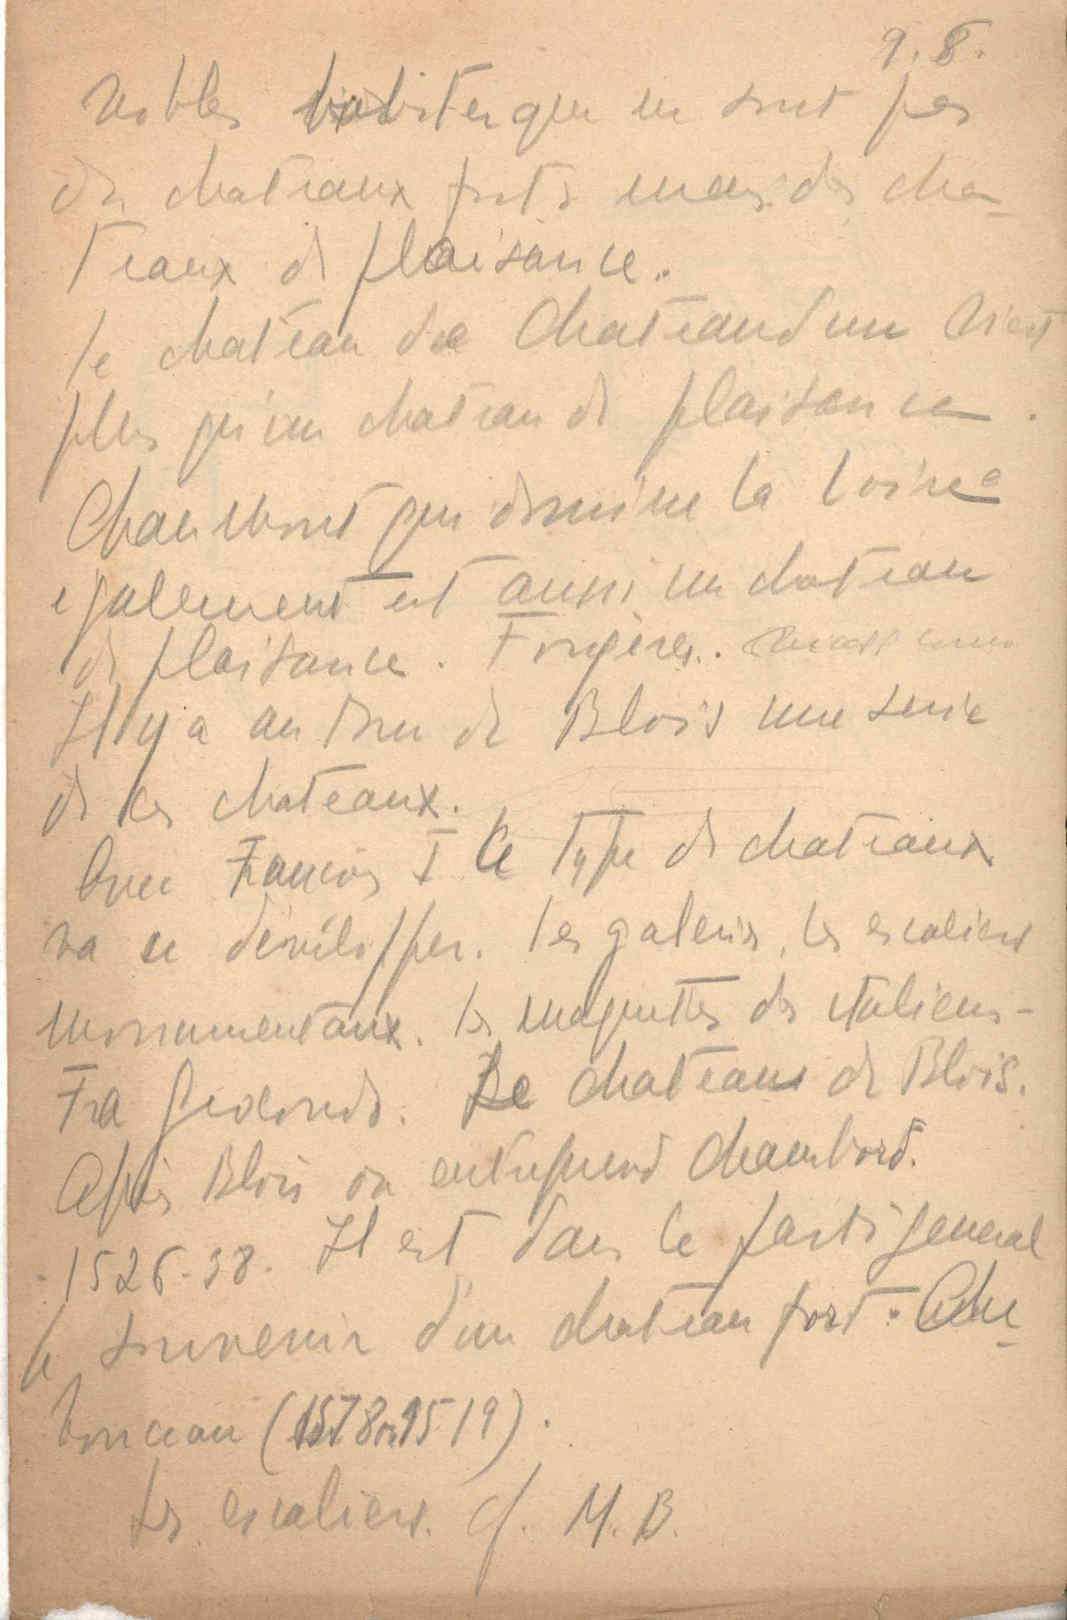 9. 8.
nobles habiter qui ne sont pas
des chateaux forts mais des cha-
teaux de plaisance.
le chateau de Chateaudun n'est
plus qu'un chateau de plaisance.
Chaumont qui domine la Loire
egalement est aussi un chateau
de plaisance. Fougères.
Il y a autour de Blois une serie
de ces chateaux.
Avec Francois I Ce type de chateaux
va se dévélopper. les galeries, les escaliers
monumentaux. les maquettes des italiens -
Fra Giocondo. Le chateau de Blois.
Après Blois on entreprend Chambord.
1526-38. Il est dans le parti general
le souvenir d'un chateau fort.
(1518 ou 1519).
Les escaliers. cf. M.B.